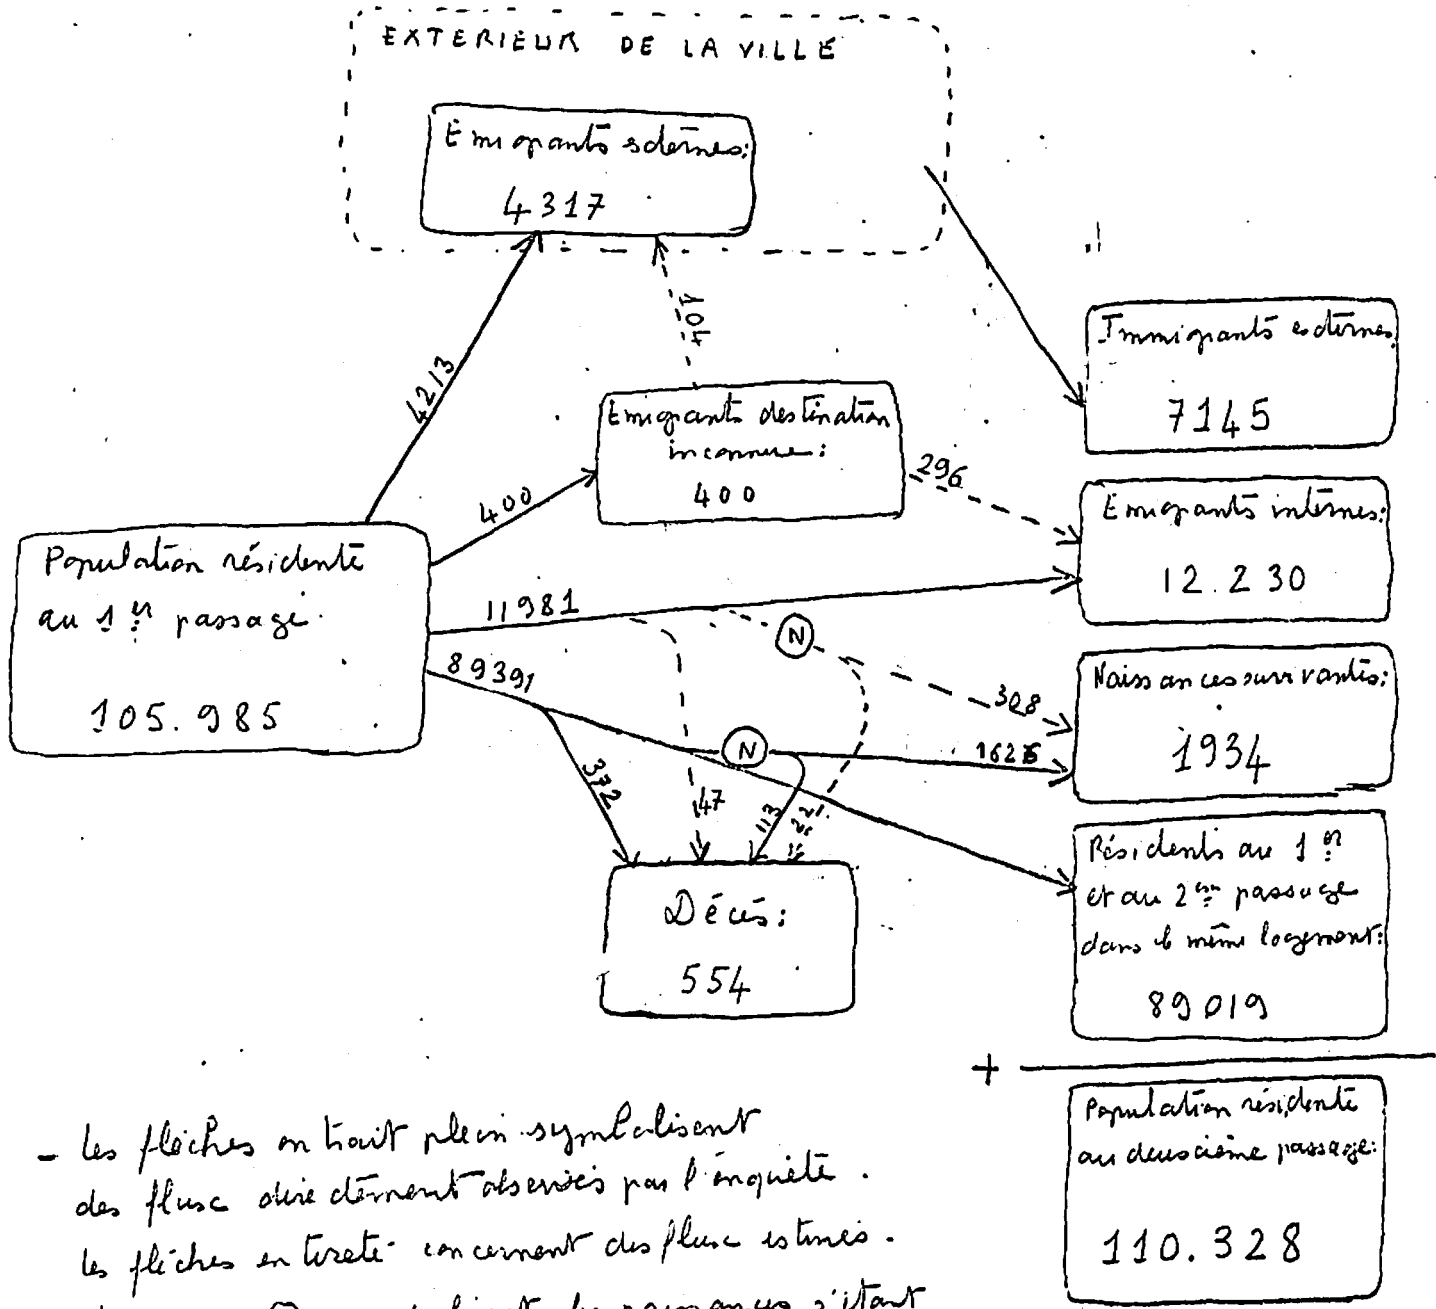 EXTERIEUR DE LA VILLE
Emigrants externes:
4317
401
4213
Immigrants externes
7145
Emigrants destination
inconnue:
400
296
400
Emigrants internes:
12.230
Population résidente
au 1er passage.
105.985
11981
N
89391
308
Naissances survivantes:
1934
N
1626
372
47
113
22
Résidents au 1er
et au 2em passage
dans le même logement:
89019
Décès:
554
+
Population résidente
au deuxième passage:
110.328
- les flèches en trait plein symbolisent
des flux directement observés par l'enquête.
les flèches en tireté concernent des flux estimés.